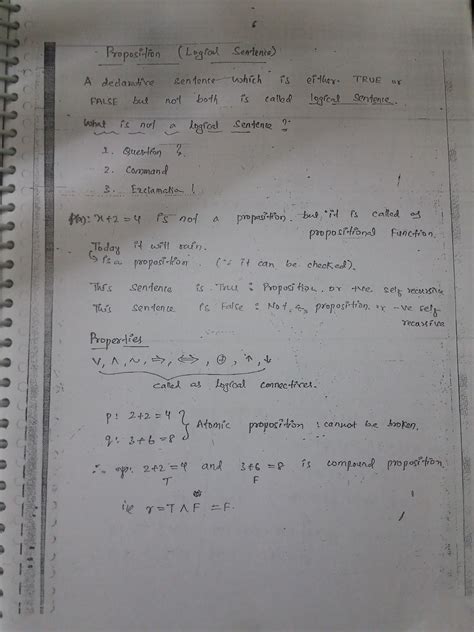 6
Proposition (Logical Sentence)
A declarative sentence which is either TRUE or
FALSE but not both is called logical sentence.
What is not a logical sentence?
1. Question ?
2. Command
3. Exclamation !
P(x): x+2=4 is not a proposition. but it is called as
propositional Function.
Today it will rain.
↳ is a proposition. (∵ it can be checked).
This sentence is True : Proposition. or +ve self recursive
This sentence is False : Not proposition. or -ve self
recursive
Properties
∨, ∧, ~, ⇒, ⇔, ⊕, ↑, ↓
called as logical connectives.
p: 2+2=4
q: 3+6=8 } Atomic proposition : cannot be broken.
∴ 2+2=4 and 3+6=8 is compound proposition
T F
ie r = T ∧ F = F.